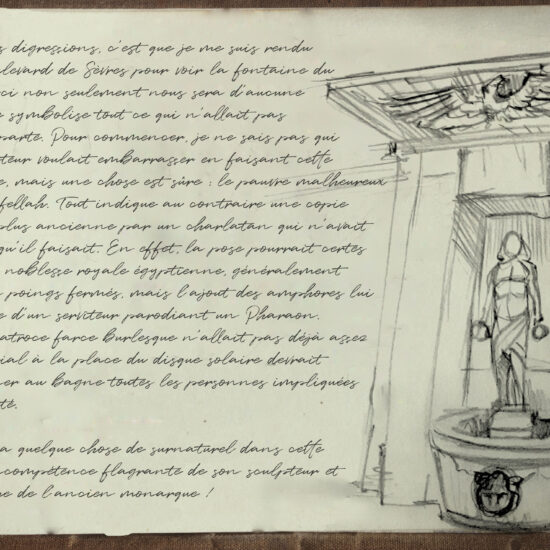 s digressions, c'est que je me suis rendu
levard de Sèvres pour voir la fontaine du
ci non seulement nous sera d'aucune
e symbolise tout ce qui n'allait pas
parte. Pour commencer, je ne sais pas qui
teur voulait embarrasser en faisant cette
e, mais une chose est sûre : le pauvre malheureux
fellah. Tout indique au contraire une copie
plus ancienne par un charlatan qui n'avait
qu'il faisait. En effet, la pose pourrait certes
noblesse royale égyptienne, généralement
s poings fermés, mais l'ajout des amphores lui
e d'un serviteur parodiant un Pharaon.
atroce farce burlesque n'allait pas déjà assez
ial à la place du disque solaire devrait
er au bagne toutes les personnes impliquées
té.
a quelque chose de surnaturel dans cette
compétence flagrante de son sculpteur et
e de l'ancien monarque !